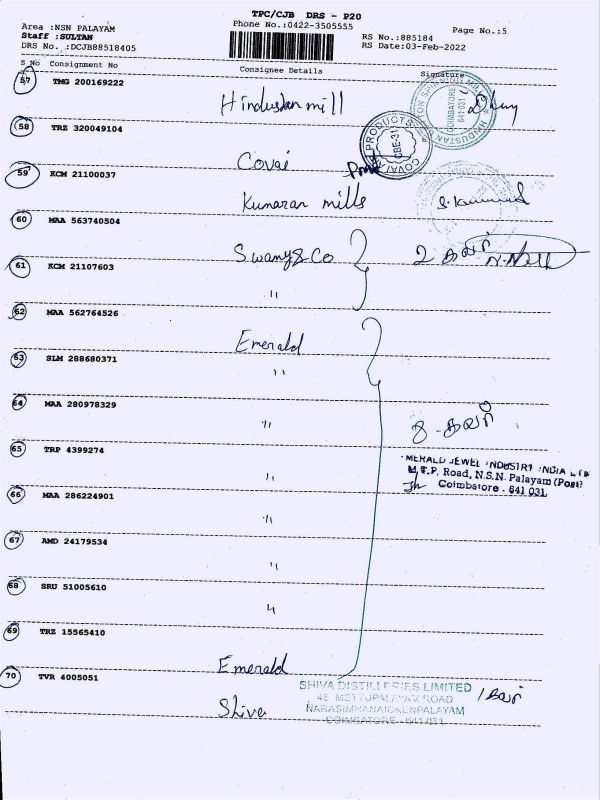 TPC/CJB DRS - P20
Area :NSN PALAYAM
Phone No.:0422-3505555
Page No.:5
Staff :SULTAN
RS No.:885184
DRS No. :DCJB88518405
RS Date:03-Feb-2022
S No Consignment No
Consignee Details
Signature
57 TMG 200169222
Hindustan mill
COIMBATORE
641 031
58 TRZ 320049104
COVAI PRODUCTS
CBE-31
Covai
59 KCM 21100037
Kumaran mills
60 MAA 563740504
Swamy & Co
2 கவர்
61 KCM 21107603
"
62 MAA 562764526
Emerald
63 SLM 288680371
"
64 MAA 280978329
"
8 - கவர்
65 TRP 4399274
MERALD JEWEL INDUSTRY INDIA LTD
M.T.P. Road, N.S.N. Palayam (Post)
Coimbatore - 641 031.
"
66 MAA 286224901
"
67 AMD 24179534
"
68 SRU 51005610
"
69 TRZ 15565410
Emerald
70 TVR 4005051
SHIVA DISTILLERIES LIMITED
45 METTUPALAYAM ROAD
NARASIMHANAICKENPALAYAM
COIMBATORE - 641 031
Shiva